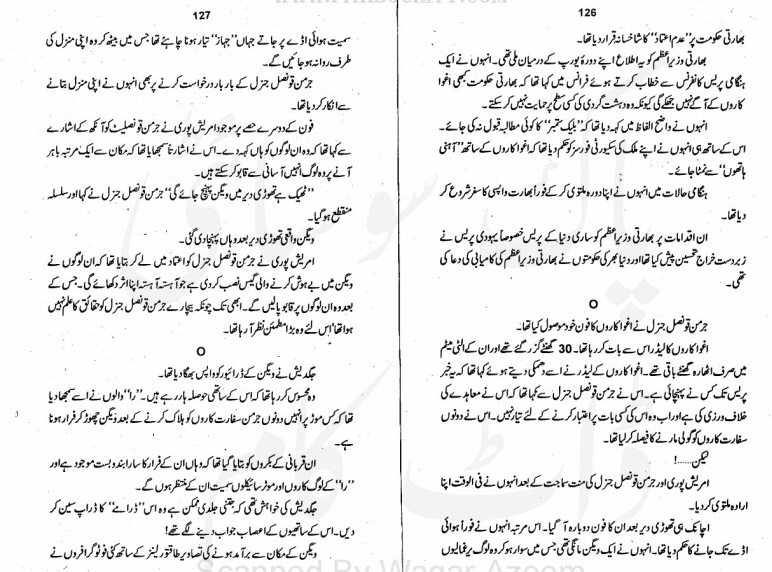 126
بھارتی حکومت پر "عدم اعتماد" کا شاخسانہ قرار دیا تھا۔
بھارتی وزیراعظم کو یہ اطلاع اپنے دورۂ یورپ کے درمیان ملی تھی۔ انہوں نے ایک
ہنگامی پریس کانفرنس سے خطاب کرتے ہوئے فرانس میں کہا تھا کہ بھارتی حکومت کبھی اغوا
کاروں کے آگے نہیں جھکے گی کیونکہ وہ دہشت گردی کی کسی سطح پر حمایت نہیں کر سکتے۔
انہوں نے واضح الفاظ میں کہہ دیا تھا کہ "بلیک ستمبر" کا کوئی مطالبہ قبول نہ کی جائے۔
اس کے ساتھ ہی انہوں نے اپنے ملک کی سیکیورٹی فورسز کو حکم دیا تھا کہ اغوا کاروں کے ساتھ "آہنی
ہاتھوں" سے نمٹا جائے۔
ہنگامی حالات میں انہوں نے اپنا دورہ ملتوی کر کے فوراً بھارت واپسی کا سفر شروع کر
دیا تھا۔
ان اقدامات پر بھارتی وزیراعظم کو ساری دنیا کے پریس خصوصاً یہودی پریس نے
زبردست خراج تحسین پیش کیا تھا اور دنیا بھر کی حکومتوں نے بھارتی وزیراعظم کی کامیابی کی دعا کی
تھی۔
O
جرمن قونصل جنرل نے اغوا کاروں کا فون خود موصول کیا تھا۔
اغوا کاروں کا لیڈر اس سے بات کر رہا تھا۔ 30 گھنٹے گزر گئے تھے اور ان کے الٹی میٹم
میں صرف اٹھارہ گھنٹے باقی تھے۔ اغوا کاروں کے لیڈر نے اسے دھمکی دیتے ہوئے کہا تھا کہ یہ خبر
پریس تک کس نے پہنچائی ہے۔ اس نے جرمن قونصل جنرل سے کہا تھا کہ اس نے معاہدے کی
خلاف ورزی کی ہے اور اب وہ اس کی کسی بات پر اعتبار کرنے کے لئے تیار نہیں۔ اس نے دونوں
سفارت کاروں کو گولی مارنے کا فیصلہ کر لیا تھا۔
لیکن.....!
امریش پوری اور جرمن قونصل جنرل کی منت سماجت کے بعد انہوں نے فی الوقت اپنا
ارادہ ملتوی کر دیا۔
اچانک ہی تھوڑی دیر بعد ان کا فون دوبارہ آ گیا۔ اس مرتبہ انہوں نے فوراً ہوائی
اڈے تک جانے کا حکم دیا تھا۔ انہوں نے ایک ویگن مانگی تھی جس میں سوار ہو کر وہ لوگ یرغمالیوں
127
سمیت ہوائی اڈے پر جاتے جہاں "جہاز" تیار ہونا چاہئے تھا جس میں بیٹھ کر وہ اپنی منزل کی
طرف روانہ ہو جائیں گے۔
جرمن قونصل جنرل کے بار بار درخواست کرنے پر بھی انہوں نے اپنی منزل بتانے
سے انکار کر دیا تھا۔
فون کے دوسرے حصے پر موجود امریش پوری نے جرمن قونصلیٹ کو آنکھ کے اشارے
سے کہا تھا کہ وہ ان لوگوں کو ہاں کہہ دے۔ اس نے اشارتاً سمجھایا تھا کہ مکان سے ایک مرتبہ باہر
آنے پر وہ لوگ انہیں آسانی سے قابو کر سکتے ہیں۔
"ٹھیک ہے تھوڑی دیر میں ویگن پہنچ جائے گی" جرمن قونصل جنرل نے کہا اور سلسلہ
منقطع ہو گیا۔
ویگن واقعی تھوڑی دیر بعد وہاں پہنچا دی گئی۔
امریش پوری نے جرمن قونصل جنرل کو اعتماد میں لے کر بتایا تھا کہ ان لوگوں نے
ویگن میں بے ہوش کرنے والی گیس نصب کر دی ہے جو آہستہ آہستہ اپنا اثر دکھائے گی۔ جس کے
بعد وہ ان لوگوں پر قابو پالیں گے۔ ابھی تک چونکہ بیچارے جرمن قونصل جنرل کو حقائق کا علم نہیں
ہوا تھا اس لئے وہ بڑا مطمئن نظر آ رہا تھا۔
O
جگدیش نے ویگن کے ڈرائیور کو واپس بھگا دیا تھا۔
وہ محسوس کر رہا تھا کہ اس کے ساتھی حوصلہ ہار رہے ہیں۔ "را" والوں نے اسے سمجھا دیا
تھا کہ کس موڑ پر انہیں دونوں جرمن سفارت کاروں کو ہلاک کرنے کے بعد ویگن چھوڑ کر فرار ہونا
ہے۔
ان قربانی کے بکروں کو بتایا گیا تھا کہ وہاں ان کے فرار کا سارا بندوبست موجود ہے اور
"را" کے لوگ کاروں اور موٹر سائیکلوں سمیت ان کے منتظر ہوں گے۔
جگدیش کی خواہش تھی کہ جتنی جلدی ممکن ہے وہ اس "ڈرامے" کا ڈراپ سین کر
دیں۔ اس کے ساتھیوں کے اعصاب جواب دینے لگے تھے!
ویگن کے مکان سے برآمد ہونے کی تصاویر طاقتور لینز کے ساتھ کئی فوٹو گرافروں نے
Scanned By Waqar Azeem